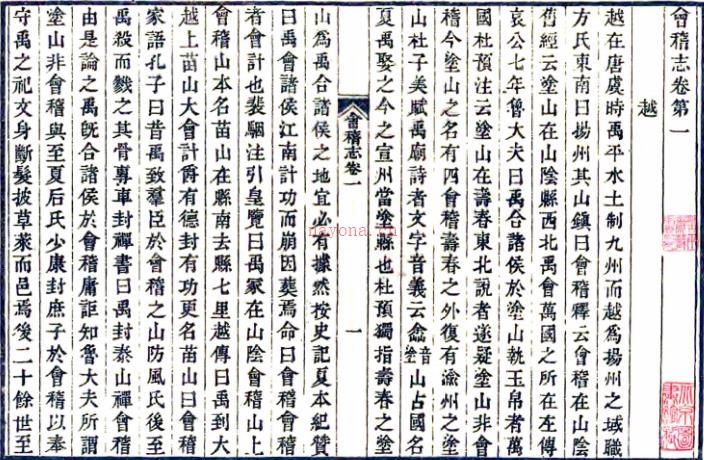 會稽志卷第一
越
越在唐虞時禹平水土制九州而越爲揚州之域職
方氏東南曰揚州其山鎮曰會稽釋云會稽在山陰
舊經云塗山在山陰縣西北禹會萬國之所在左傳
哀公七年魯大夫曰禹合諸侯於塗山執玉帛者萬
國杜預注云塗山在壽春東北說者遂疑塗山非會
稽今塗山之名有四會稽壽春之外復有渝州之塗
山杜子美賦禹廟詩者文字音義云嵞音塗山古國名
夏禹娶之今之宣州當塗縣也杜預獨指壽春之塗
會稽志卷一
一
山爲禹合諸侯之地宜必有據然按史記夏本紀贊
曰禹會諸侯江南計功而崩因葬焉命曰會稽會稽
者會計也裴駰注引皇覽曰禹冢在山陰會稽山上
會稽山本名苗山在縣南去縣七里越傳曰禹到大
越上苗山大會計爵有德封有功更名苗山曰會稽
家語孔子曰昔禹致羣臣於會稽之山防風氏後至
禹殺而戮之其骨專車封禪書曰禹封泰山禪會稽
由是論之禹旣合諸侯於會稽庸詎知魯大夫所謂
塗山非會稽與至夏后氏少康封庶子於會稽以奉
守禹之祀文身斷髮披草萊而邑焉後二十餘世至
nayona.cn